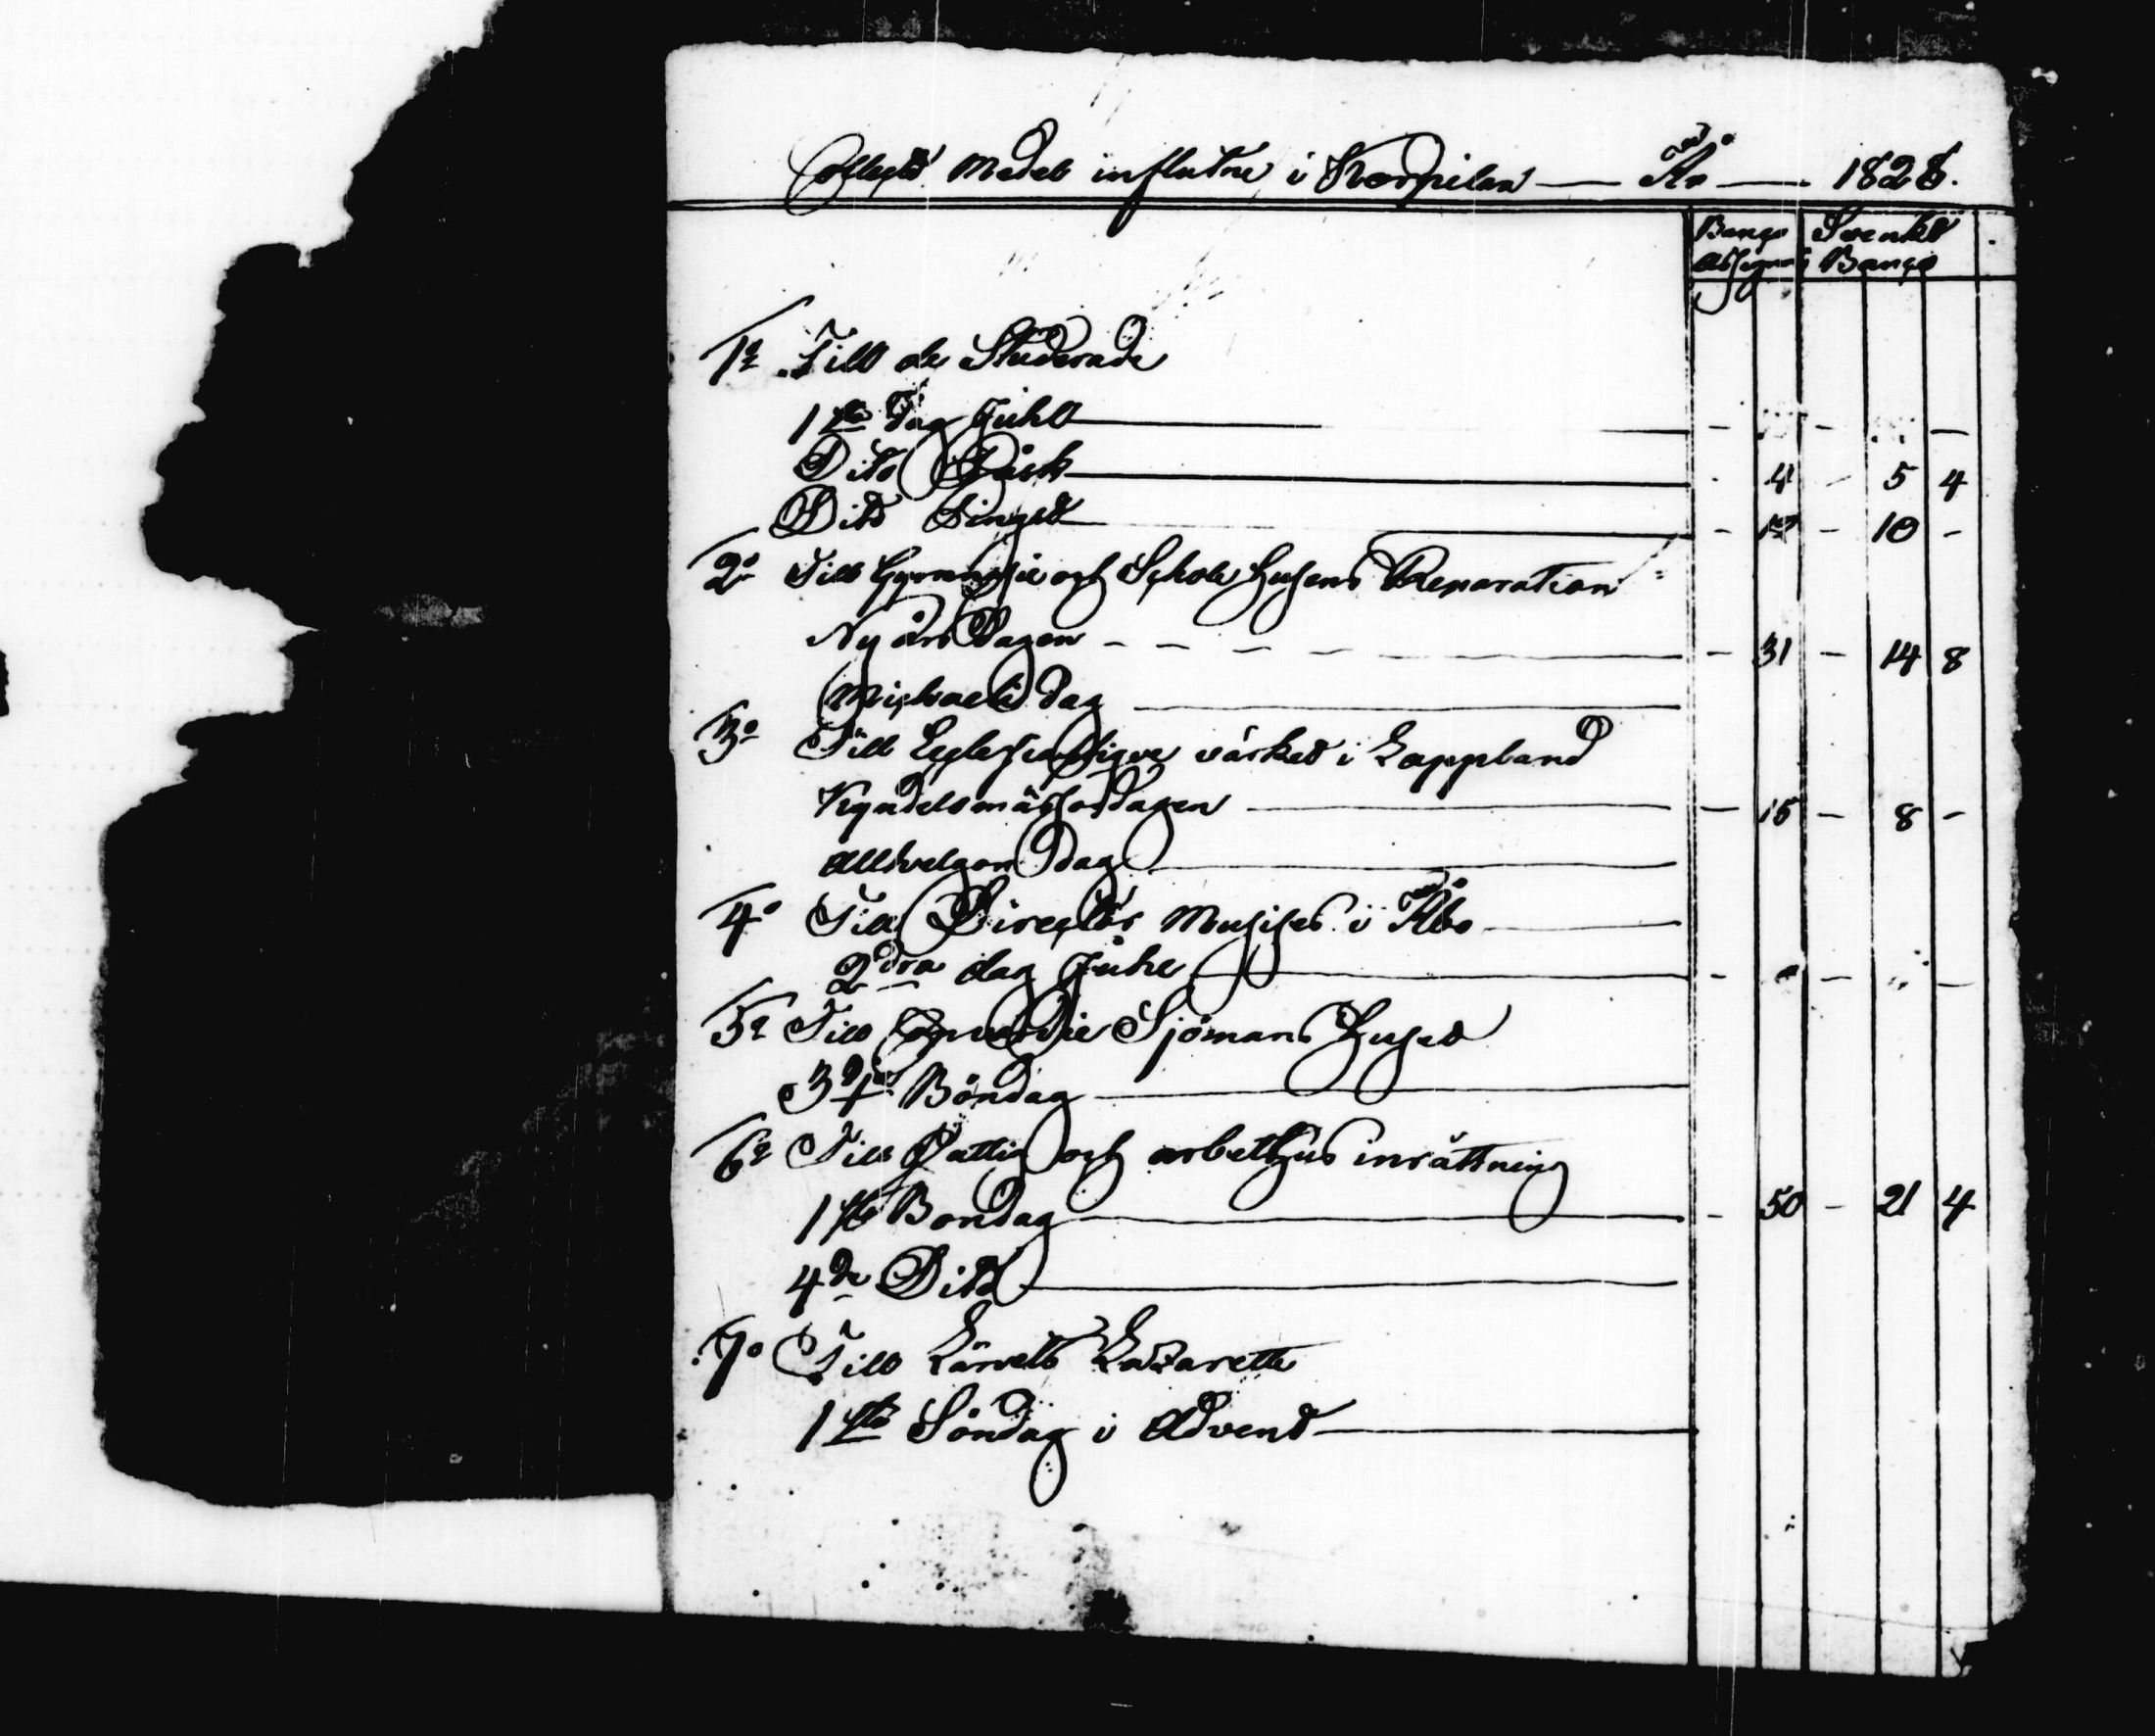 Collect Medel influtne i Korpilax — År — 1828.
Banco Assignat Svenskt Banco
1o Till de Studerade
1sta Dag Juhl — - — - —
Dito Påsk — - 4 - 5 4
Dito Pingst — - - 10 -
2o Till Gymnasie och Schole Husens Reparation
Nyårs Dagen - - - - - 31 - 14 8
Michaeli Dag —
3o Till Ecclesiastique värket i Lappland
Kyndelsmässodagen — - 15 - 8 -
Allhelgon Dag —
4o Till Director Musices i Åbo —
2dra dag Juhl — - - —
5o Till Sjömans Huset
3dje Böndag —
6o Till Fattig och arbetshus inrättning
1sta Bondag — - 50 - 21 4
4de Dito —
7o Till Länets Lazarette
1sta Söndag i Advent —